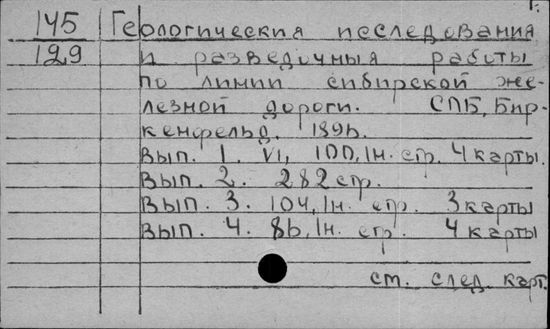 Г.
145 Геологическия исследования
129 и разведочныя работы
по линии сибирской же-
лезной дороги. СПБ, Бир-
кенфельд, 1896.
Вып. 1. VI, 100, 1н. стр. 4 карты.
Вып. 2. 282 стр.
Вып. 3. 104, 1н. стр. 3 карты
Вып. 4. 86, 1н. стр. 4 карты
см. след. карт.